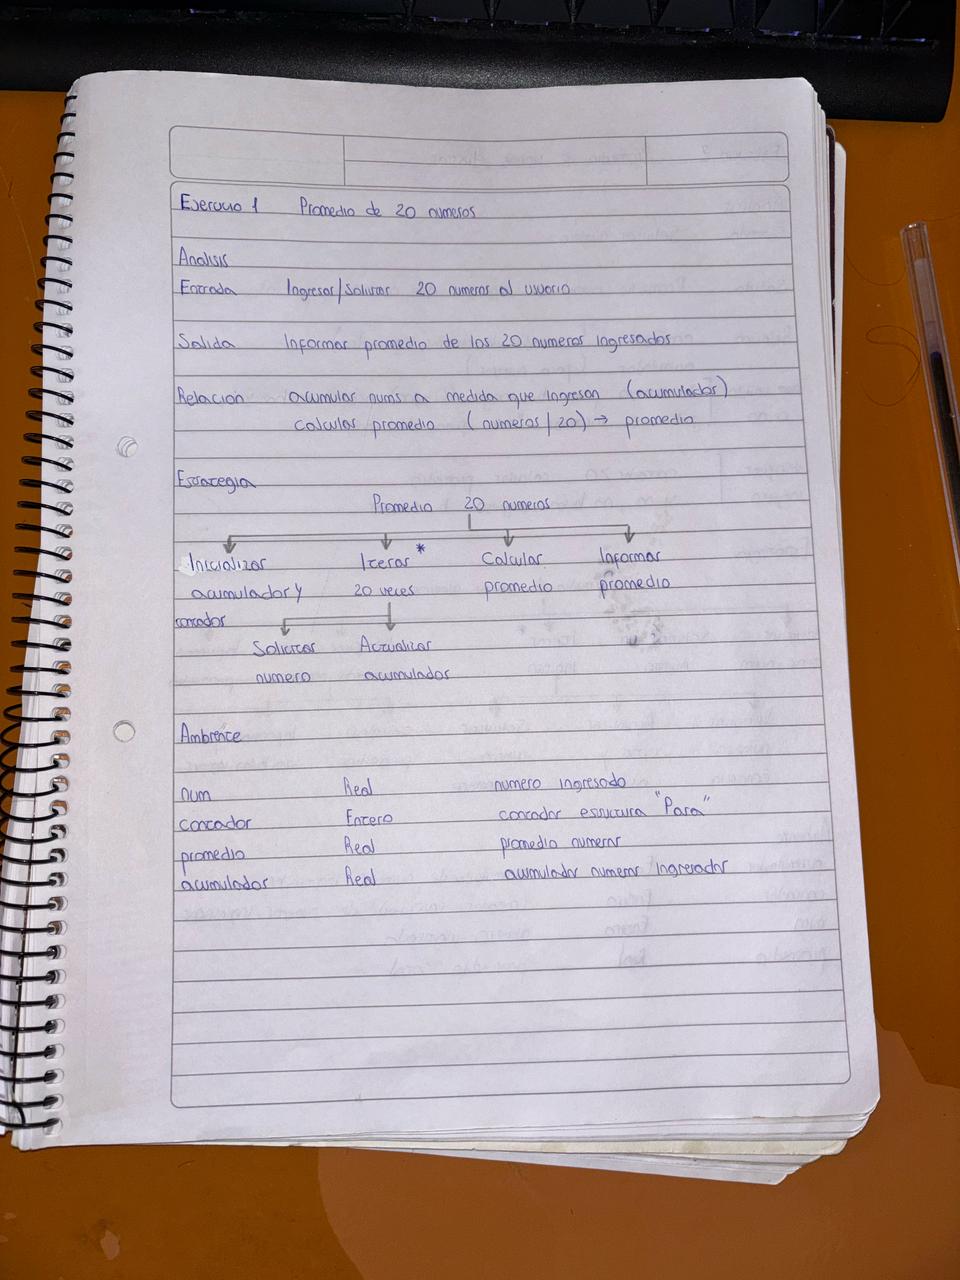 Ejercicio 1 Promedio de 20 numeros
Analisis
Entrada Ingresar/Solicitar 20 numeros al usuario
Salida Informar promedio de los 20 numeros ingresados
Relacion acumular nums a medida que ingresan (acumulador)
calcular promedio (numeros/20) → promedio
Estrategia
Promedio 20 numeros
Inicializar Iterar * Calcular Informar
acumulador y 20 veces promedio promedio
contador
Solicitar Actualizar
numero acumulador
Ambiente
num Real numero ingresado
contador Entero contador estructura "Para"
promedio Real promedio numeros
acumulador Real acumulador numeros ingresados